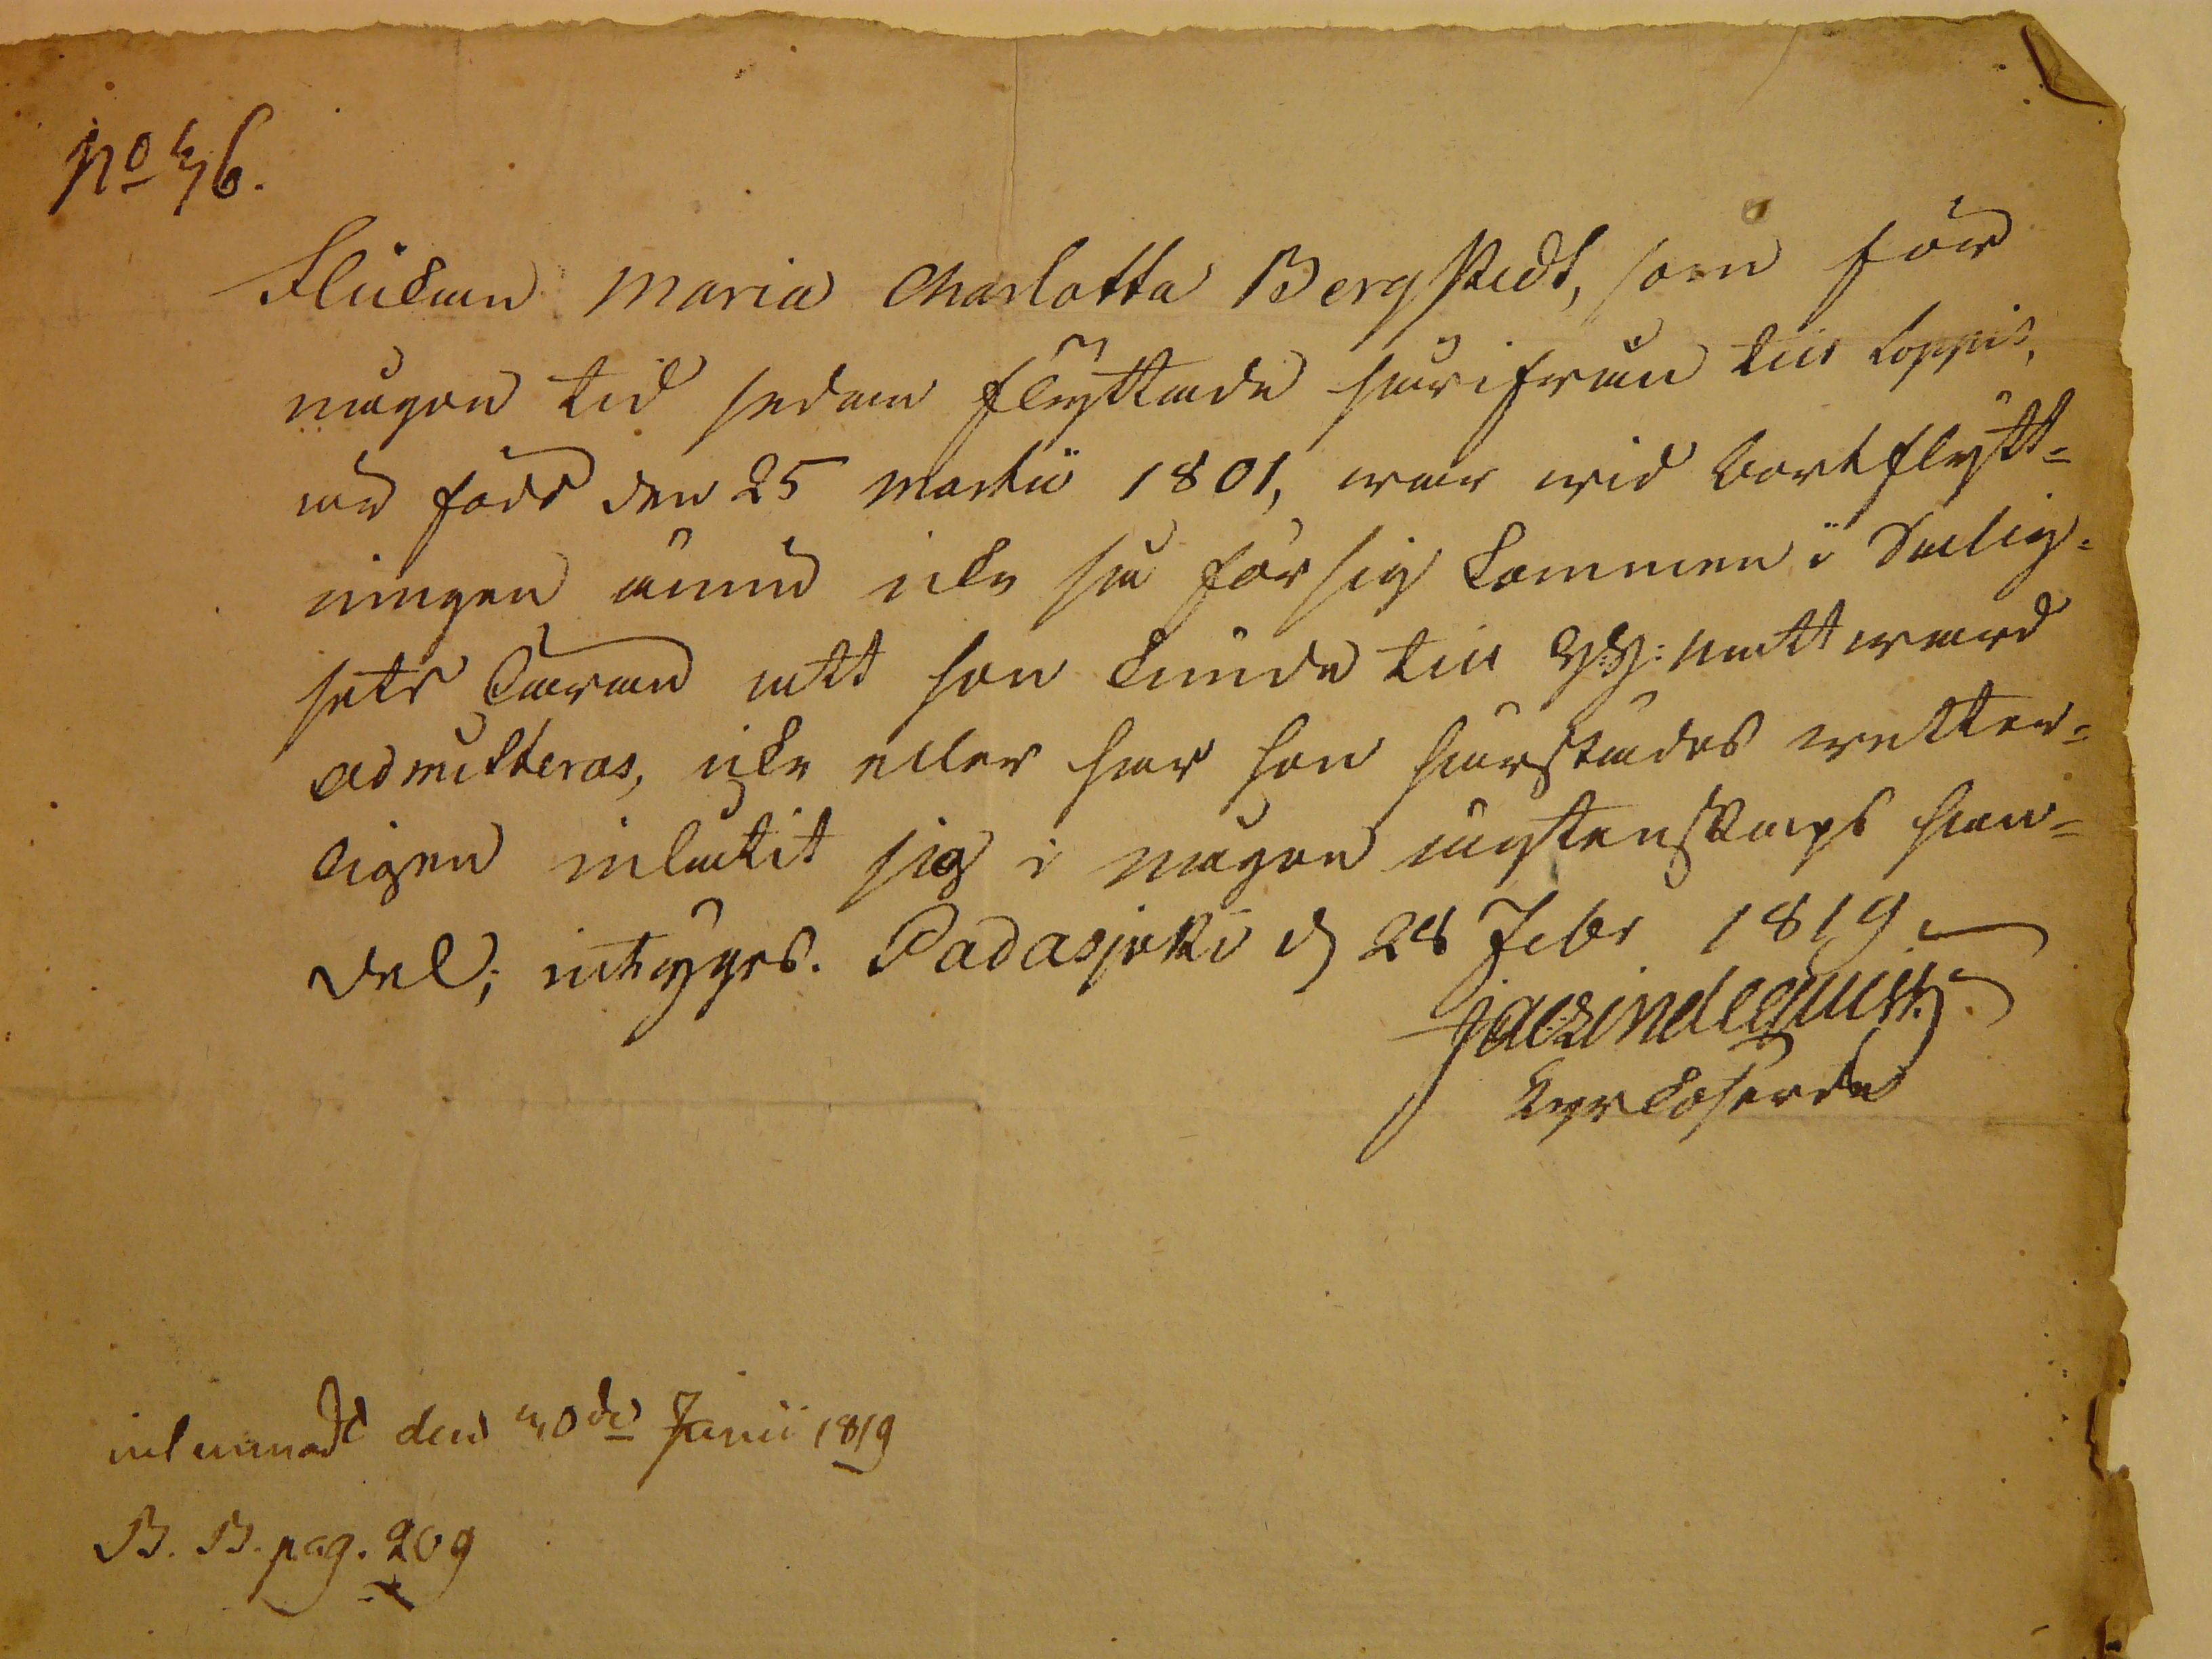 No 46.
Flickan Maria Charlotta Bergstedt, som för
någon tid sedan flyttade härifrån till Loppis,
är född den 25 Martii 1801, war wid bortflytt=
ningen ännu icke så försig kommen i Salig=
hets läran att hon kunde till HH: Nattward
admitteras, icke eller har hon härstädes wetter=
ligen inlåtit sig i någon ägtenskaps han=
del; intygas. Padasjoki d 28 Febr 1819.
Kyrkoherde
inlemnadt den 20de Junii 1819
B. B. pag. 209